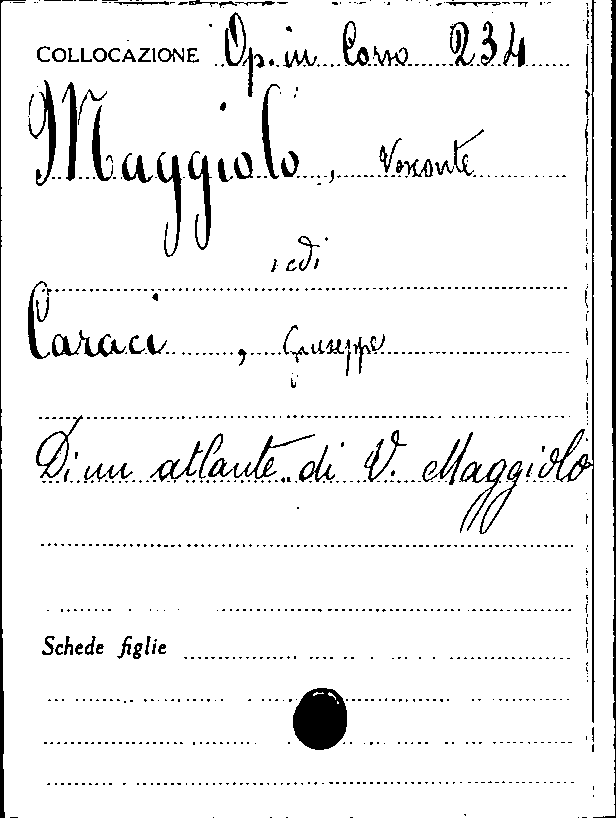 COLLOCAZIONE Op. in Corso 234
Maggiolo, Vesconte
vedi
Caraci, Giuseppe
Di un atlante di V. Maggiolo
Schede figlie